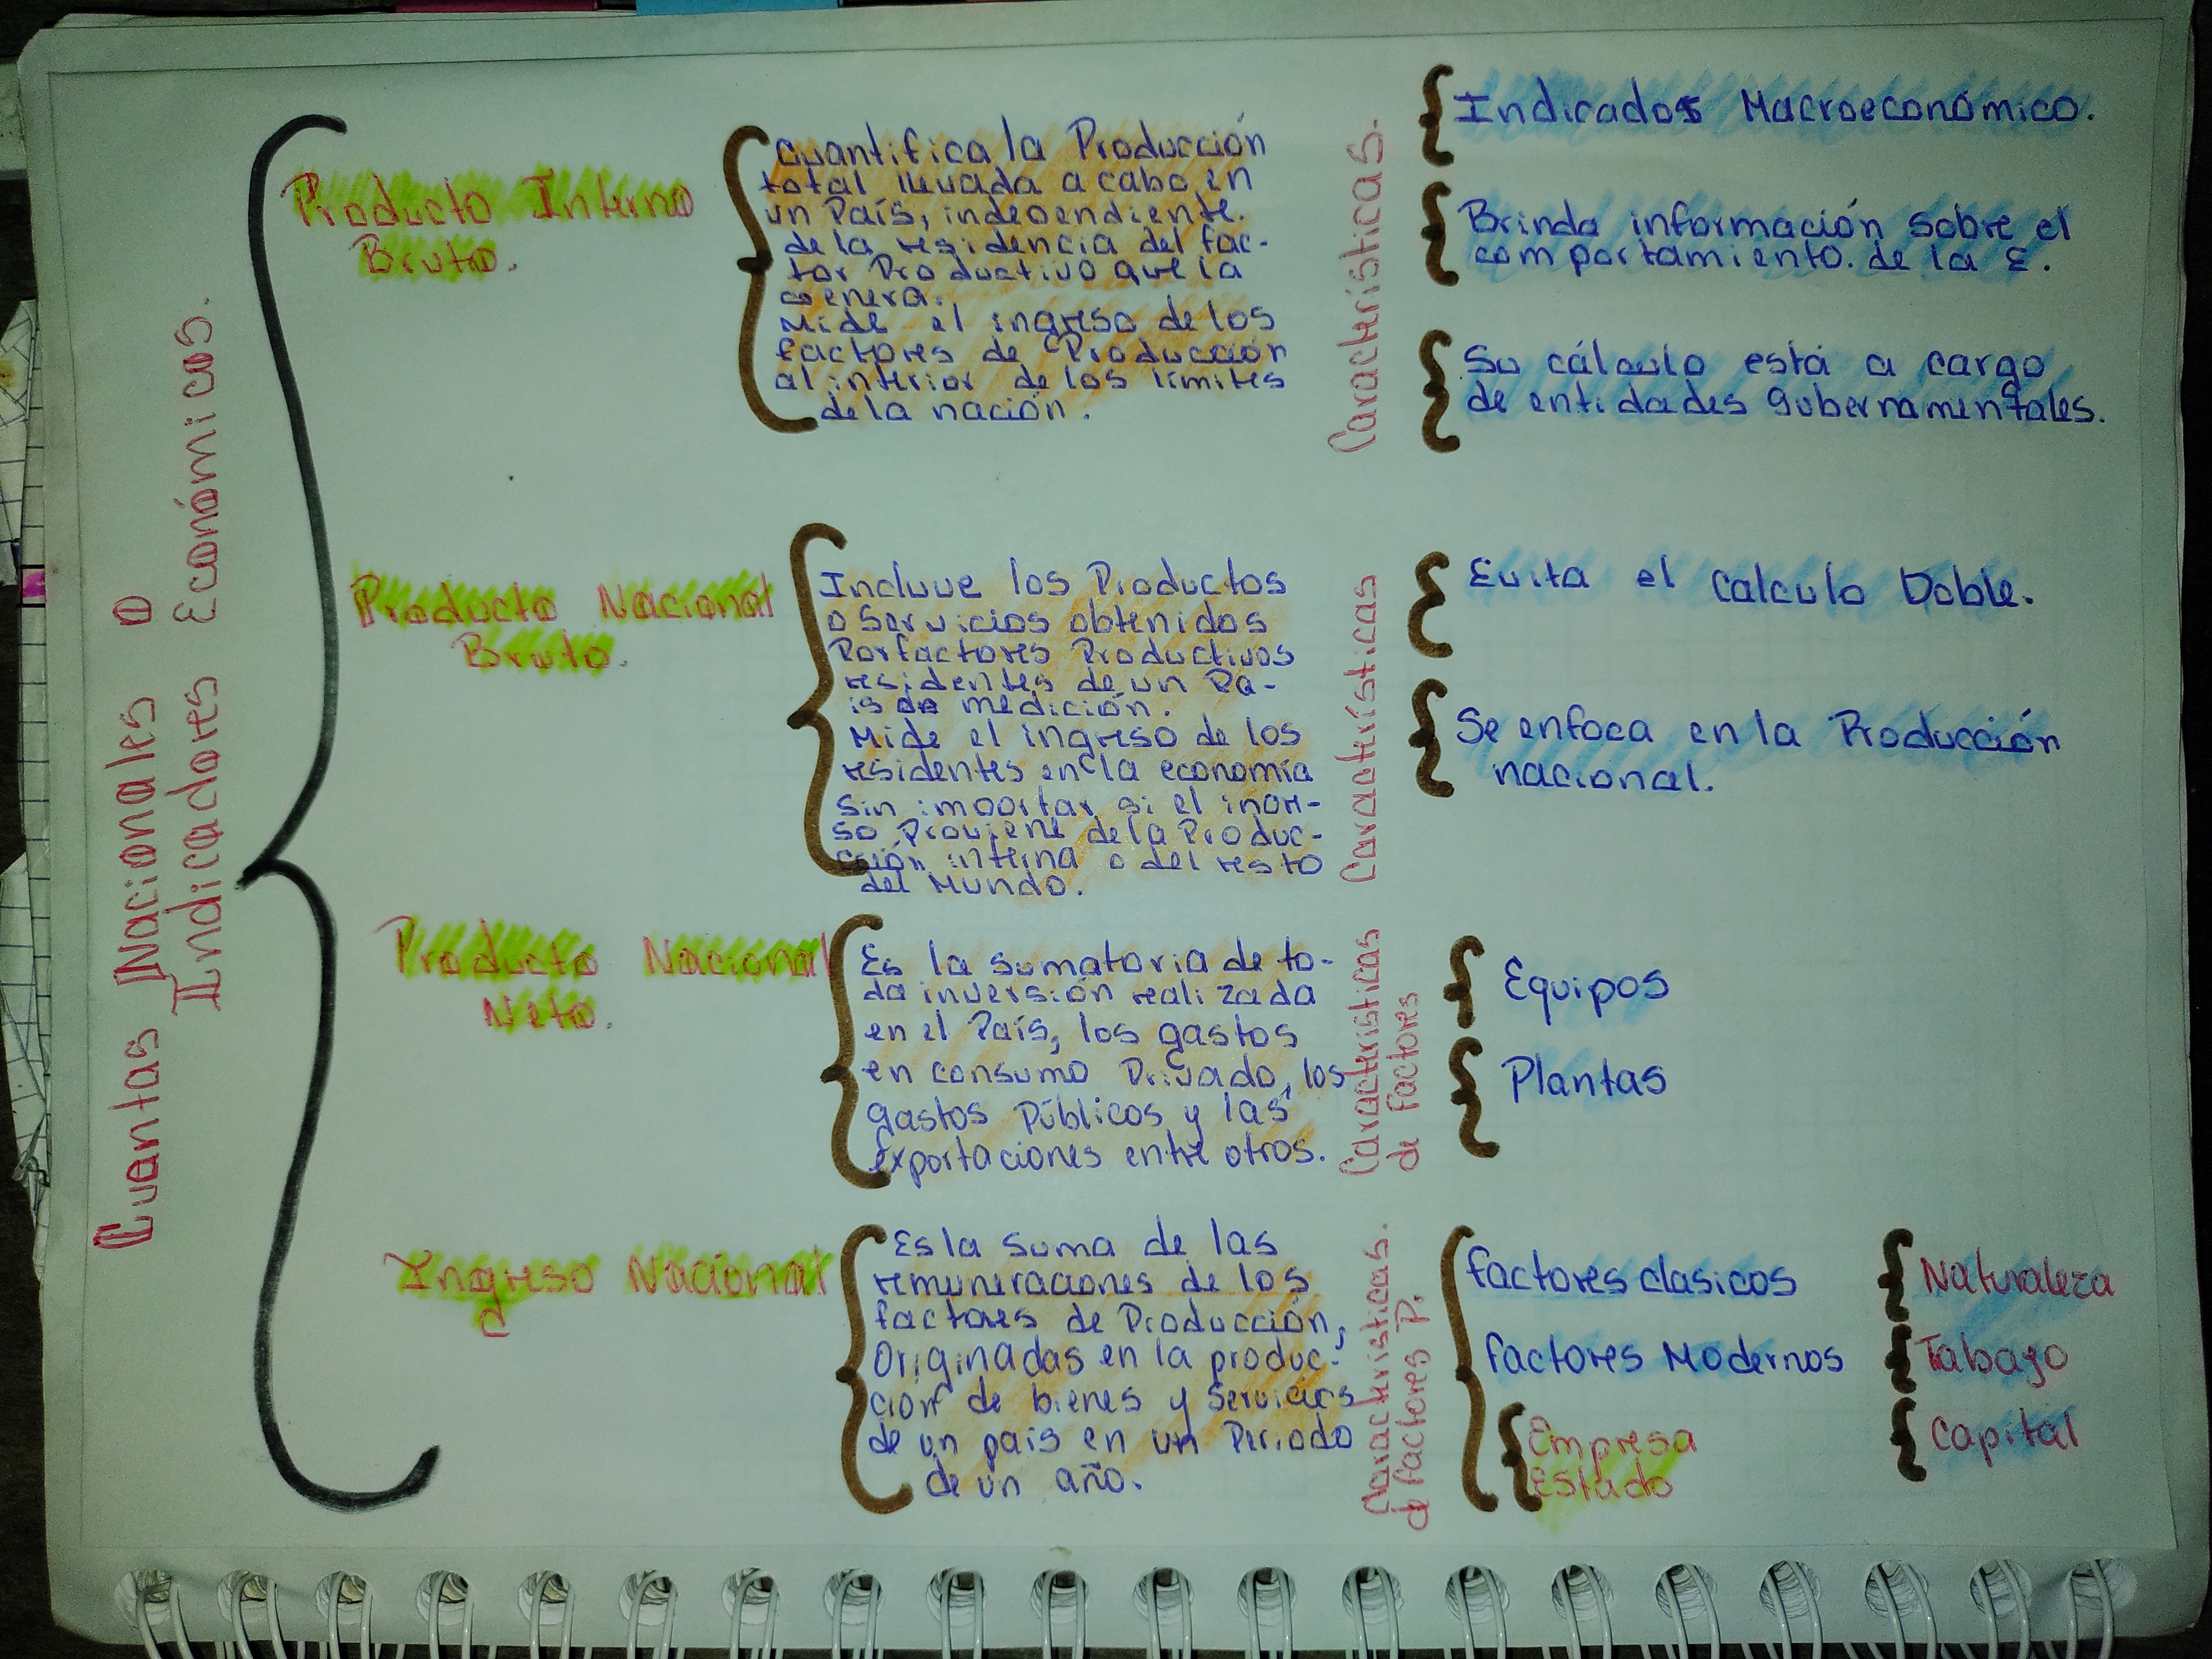 Cuantas Nacionales o
Indicadores Económicos.
Producto Interno
Bruto.
Cuantifica la Producción
total llevada a cabo en
un País, independiente.
de la residencia del fac-
tor Productivo que la
genera.
Mide el ingreso de los
factores de Producción
al interior de los límites
de la nación.
Características.
Indicados Macroeconómico.
Brinda información sobre el
comportamiento. de la E.
Su cálculo está a cargo
de entidades gubernamentales.
Producto Nacional
Bruto.
Incluye los Productos
o Servicios obtenidos
Por factores Productivos
residentes de un Pa-
is de medición.
Mide el ingreso de los
residentes en la economía
sin importar si el ingre-
so Proviene de la Produc-
cción interna o del resto
del Mundo.
Características
Evita el Calculo Doble.
Se enfoca en la Producción
nacional.
Producto Nacional
Neto.
Es la sumatoria de to-
da inversión realizada
en el País, los gastos
en consumo Privado, los
gastos Públicos y las
exportaciones entre otros.
Características
de factores
Equipos
Plantas
Ingreso Nacional
Es la suma de las
remuneraciones de los
factores de Producción,
Originadas en la produc-
ción de bienes y Servicios
de un pais en un Periodo
de un año.
Características.
de factores P.
factores clasicos
factores Modernos
Empresa
Estado
Naturaleza
Tabajo
Capital